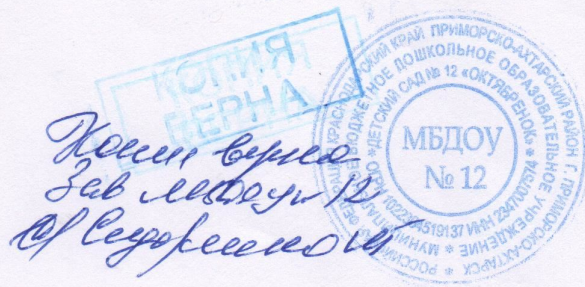 КОПИЯ
ВЕРНА
Копия верна
Зав МБДОУ № 12
РОССИЙСКАЯ ФЕДЕРАЦИЯ КРАСНОДАРСКИЙ КРАЙ ПРИМОРСКО-АХТАРСКИЙ РАЙОН Г. ПРИМОРСКО-АХТАРСК
МУНИЦИПАЛЬНОЕ БЮДЖЕТНОЕ ДОШКОЛЬНОЕ ОБРАЗОВАТЕЛЬНОЕ УЧРЕЖДЕНИЕ
«ДЕТСКИЙ САД № 12 «ОКТЯБРЕНОК»
ИНН
МБДОУ
№ 12